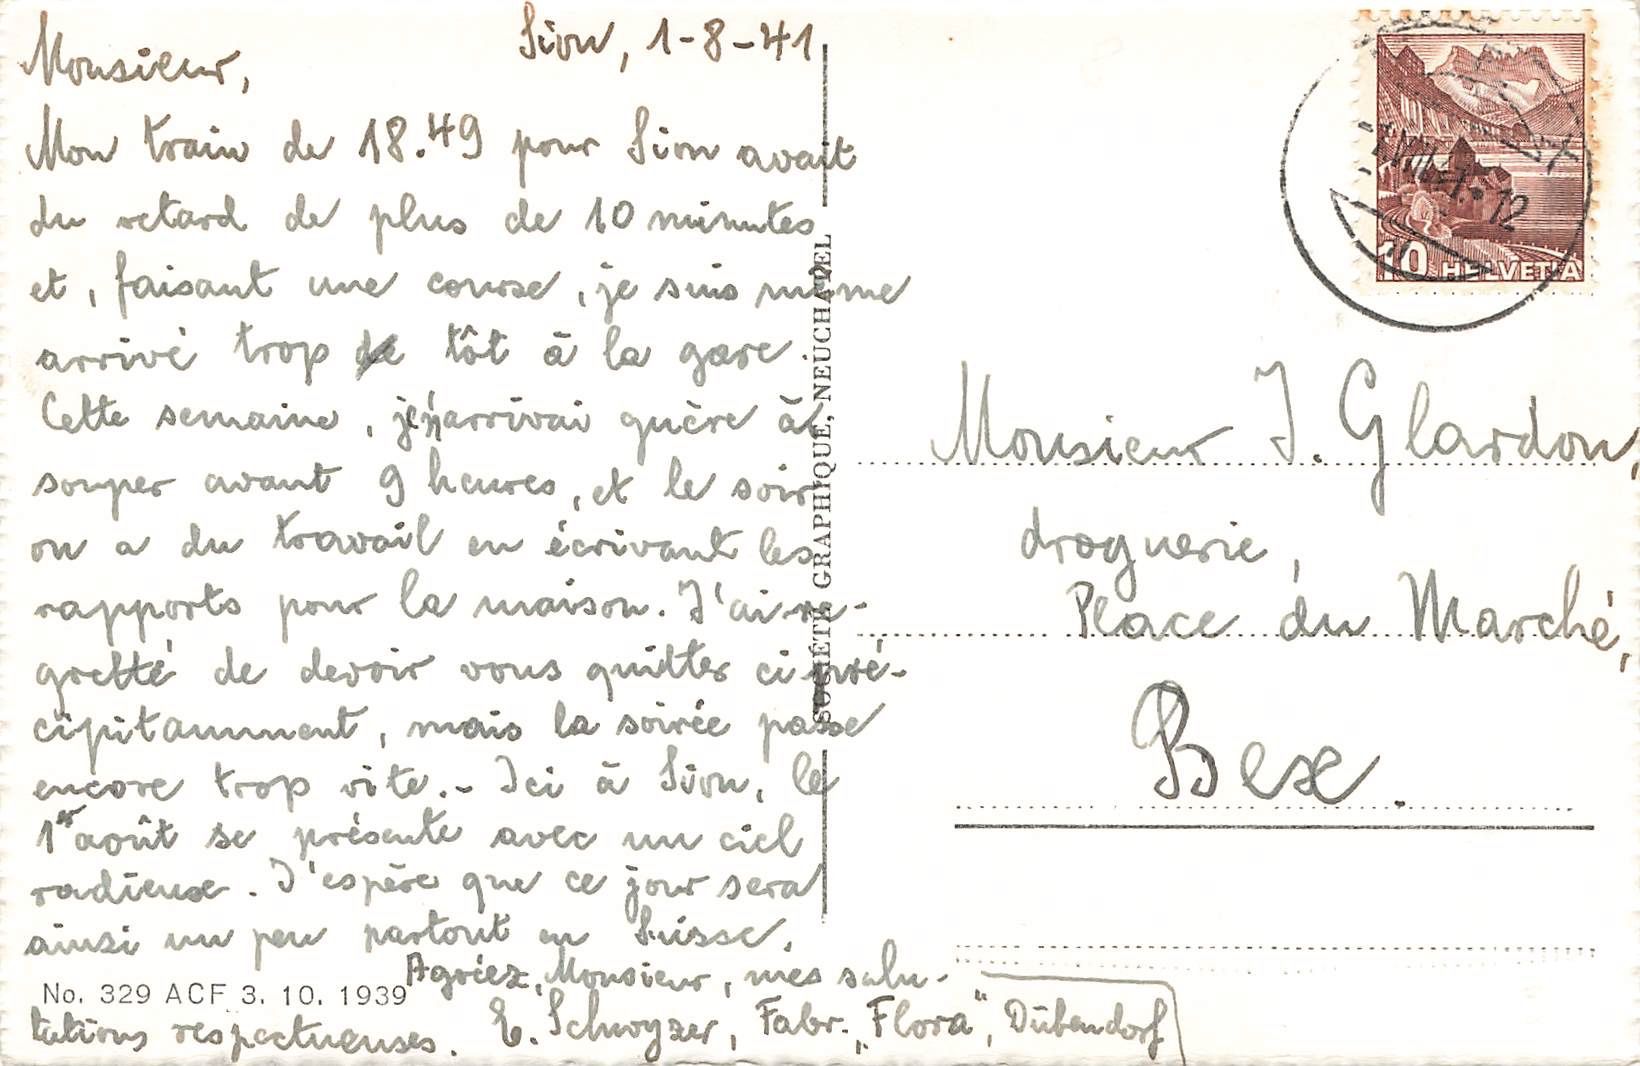 Sion, 1-8-41
Monsieur,
Mon train de 18.49 pour Sion avait
du retard de plus de 10 minutes
et, faisant une course, je suis même
arrivé trop de tôt à la gare.
Cette semaine, je n'arrivai guère à
souper avant 9 heures, et le soir
on a du travail en écrivant les
rapports pour la maison. J'ai re-
gretté de devoir vous quitter si pré-
cipitamment, mais la soirée passe
encore trop vite.- Ici à Sion, le
1er août se présente avec un ciel
radieuse. J'espère que ce jour sera
ainsi un peu partout en Suisse.
Agréez, Monsieur, mes salu-
tations respectueuses. E. Schwyzer, Fabr. „Flora", Dübendorf
No. 329 ACF 3. 10. 1939
SOCIÉTÉ GRAPHIQUE, NEUCHATEL
10 HELVETIA
12
Monsieur J. Glardon,
droguerie,
Place du Marché,
Bex.